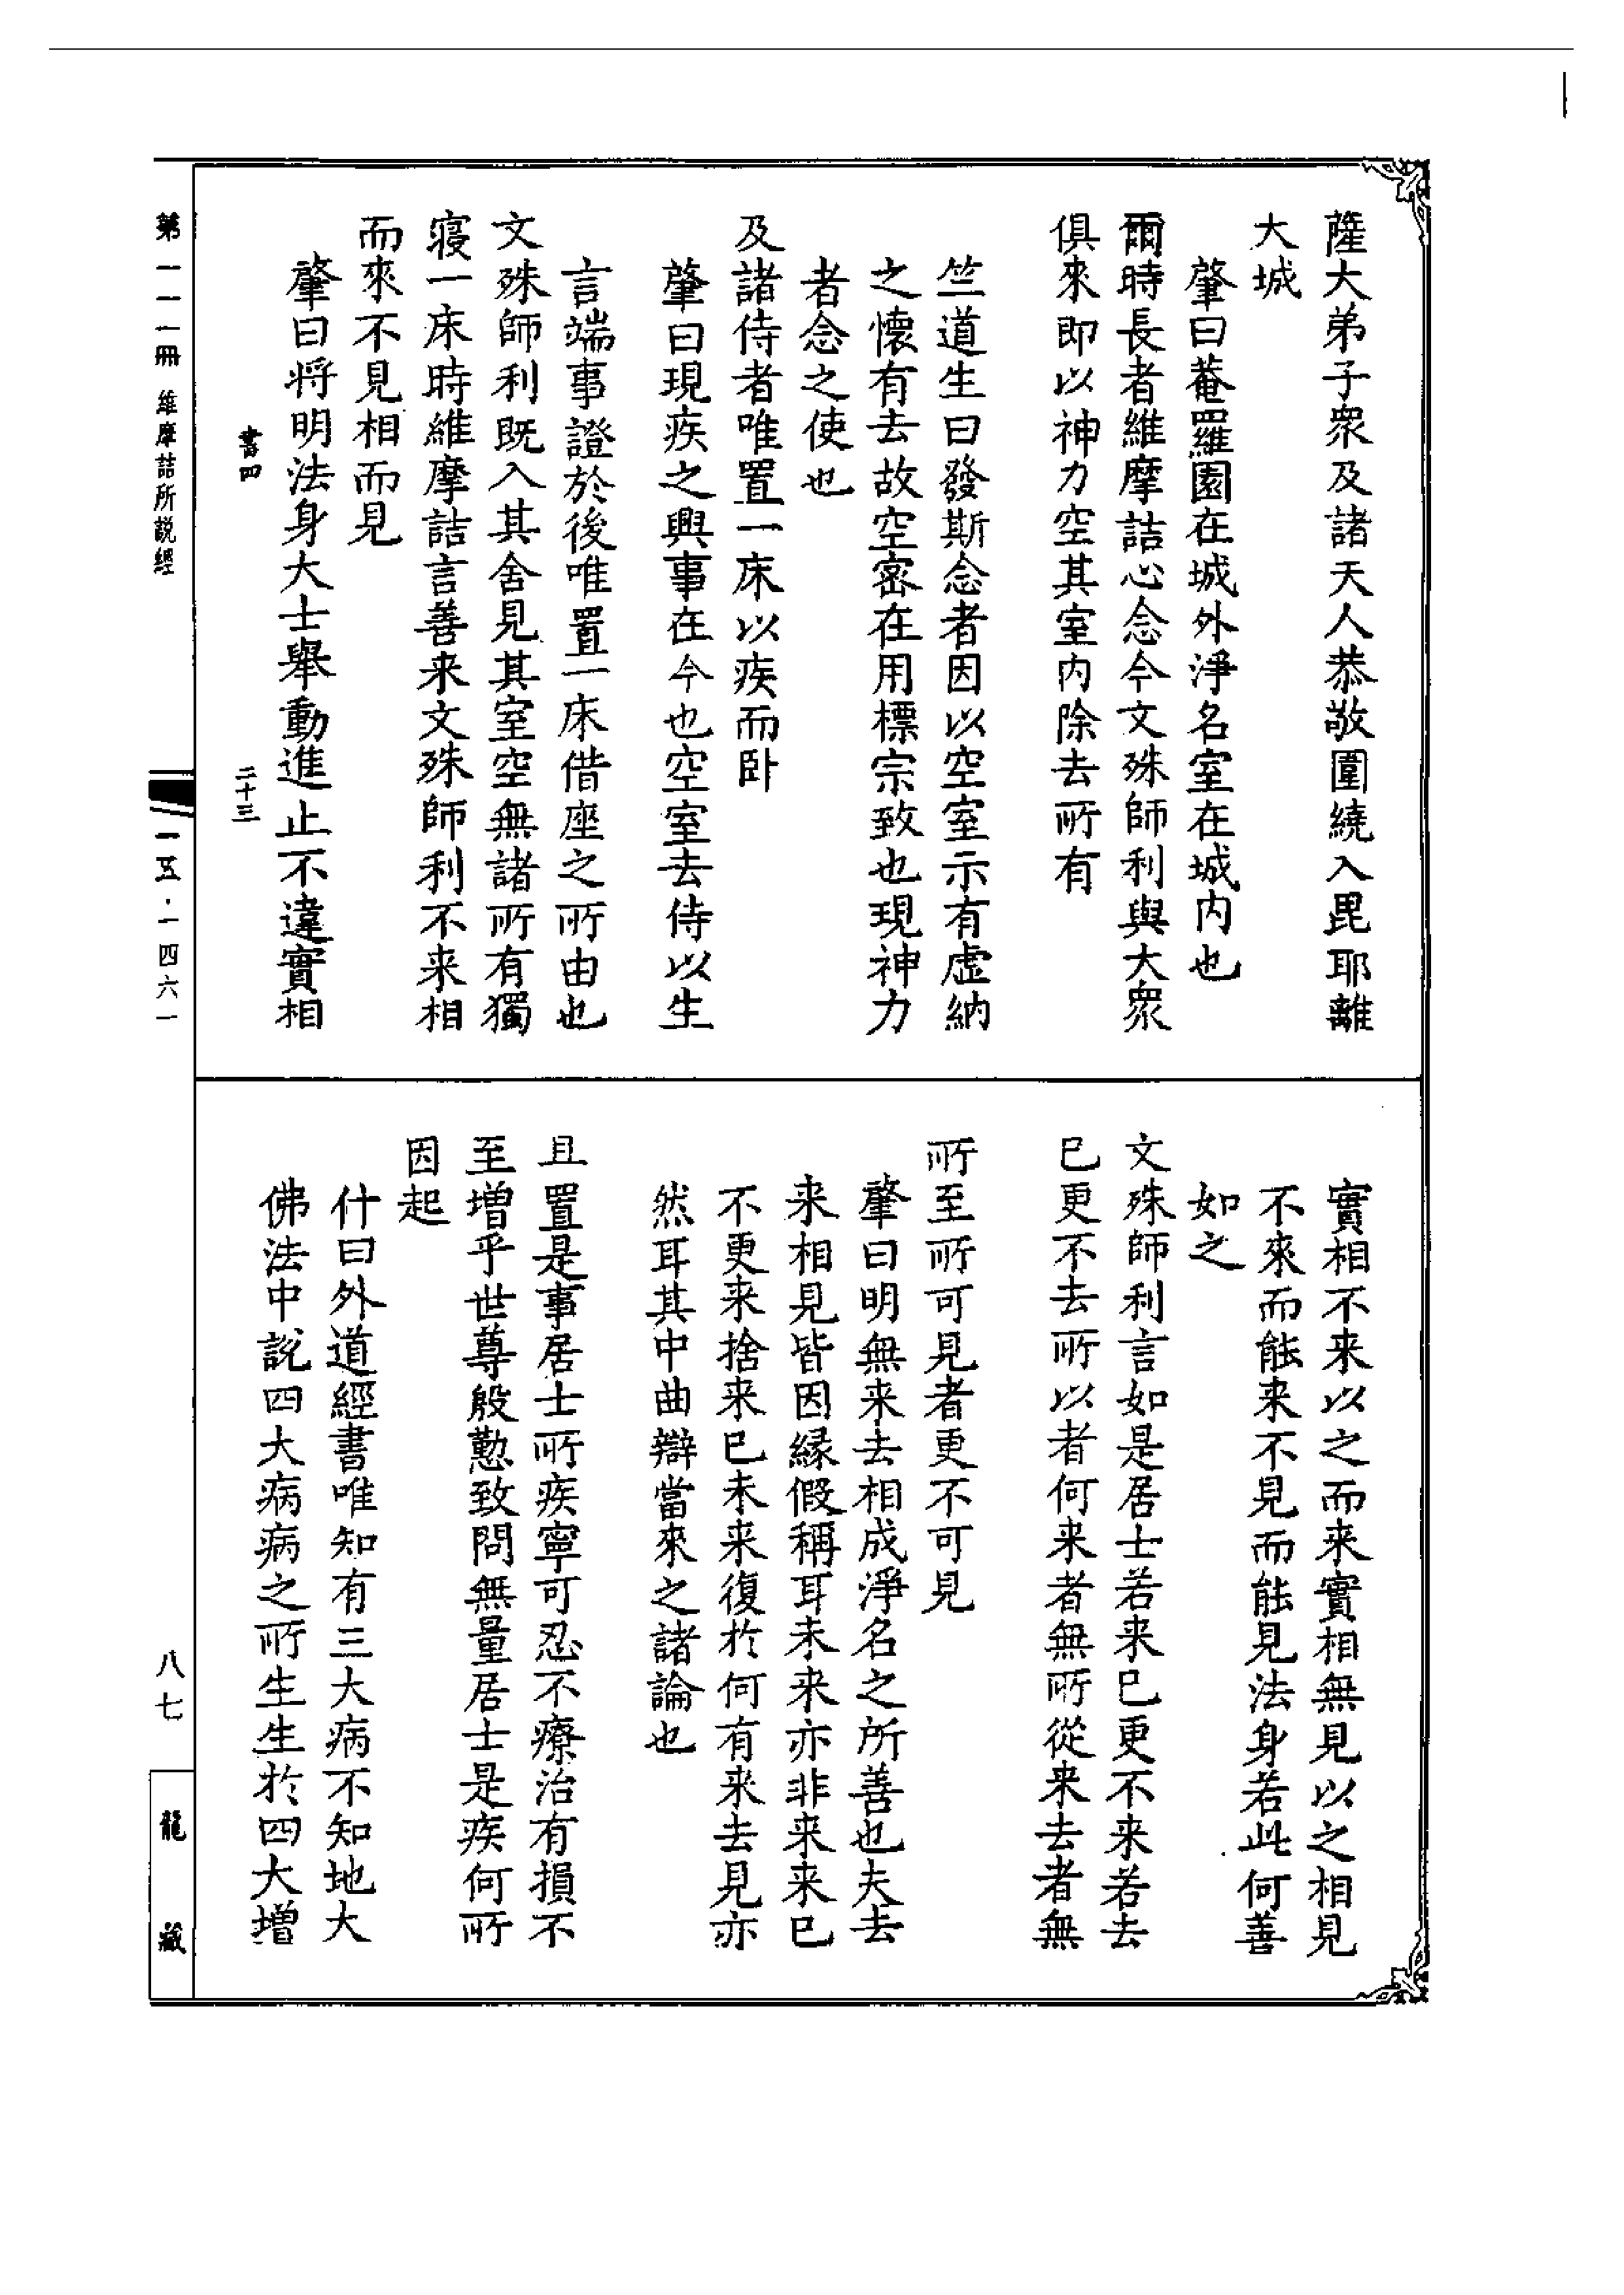 薩大弟子衆及諸天人恭敬圍繞入毘耶離
大城
肇曰菴羅園在城外淨名室在城内也
爾時長者維摩詰心念今文殊師利與大衆
俱來即以神力空其室内除去所有
竺道生曰發斯念者因以空室示有虛納
之懷有去故空密在用標宗致也現神力
者念之使也
及諸侍者唯置一床以疾而卧
肇曰現疾之興事在今也空室去侍以生
言端事證於後唯置一床借座之所由也
文殊師利既入其舍見其室空無諸所有獨
寢一床時維摩詰言善来文殊師利不来相
而來不見相而見
肇曰将明法身大士舉動進止不違實相
書四 二十三
實相不来以之而来實相無見以之相見
不來而能来不見而能見法身若此何善
如之
文殊師利言如是居士若来已更不来若去
已更不去所以者何来者無所從来去者無
所至所可見者更不可見
肇曰明無来去相成淨名之所善也夫去
来相見皆因緣假稱耳未来亦非来来已
不更来捨来已未来復於何有来去見亦
然耳其中曲辯當來之諸論也
且置是事居士所疾寧可忍不療治有損不
至增乎世尊殷懃致問無量居士是疾何所
因起
什曰外道經書唯知有三大病不知地大
佛法中說四大病病之所生生於四大增
第一一一冊 維摩詰所說經
一五·一四六一
八七
龍藏